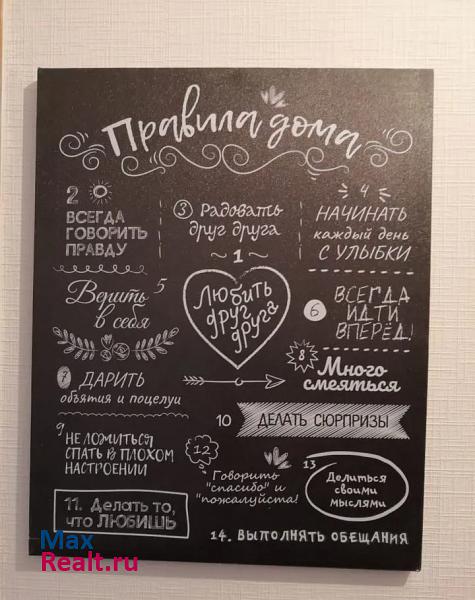 Правила дома
2
ВСЕГДА
ГОВОРИТЬ
ПРАВДУ
3 Радовать
друг друга
4
НАЧИНАТЬ
каждый день
С УЛЫБКИ
~ 1 ~
Любить
друг
друга
5
Верить
в себя
6
ВСЕГДА
ИДТИ
ВПЕРЁД!
7 ДАРИТЬ
объятия и поцелуи
8
Много
смеяться
9
НЕ ЛОЖИТЬСЯ
СПАТЬ В ПЛОХОМ
НАСТРОЕНИИ
10 ДЕЛАТЬ СЮРПРИЗЫ
11. Делать то,
что ЛЮБИШЬ
12
Говорить
"спасибо" и
"пожалуйста!
13
Делиться
своими
мыслями
14. ВЫПОЛНЯТЬ ОБЕЩАНИЯ
Max
Realt.ru